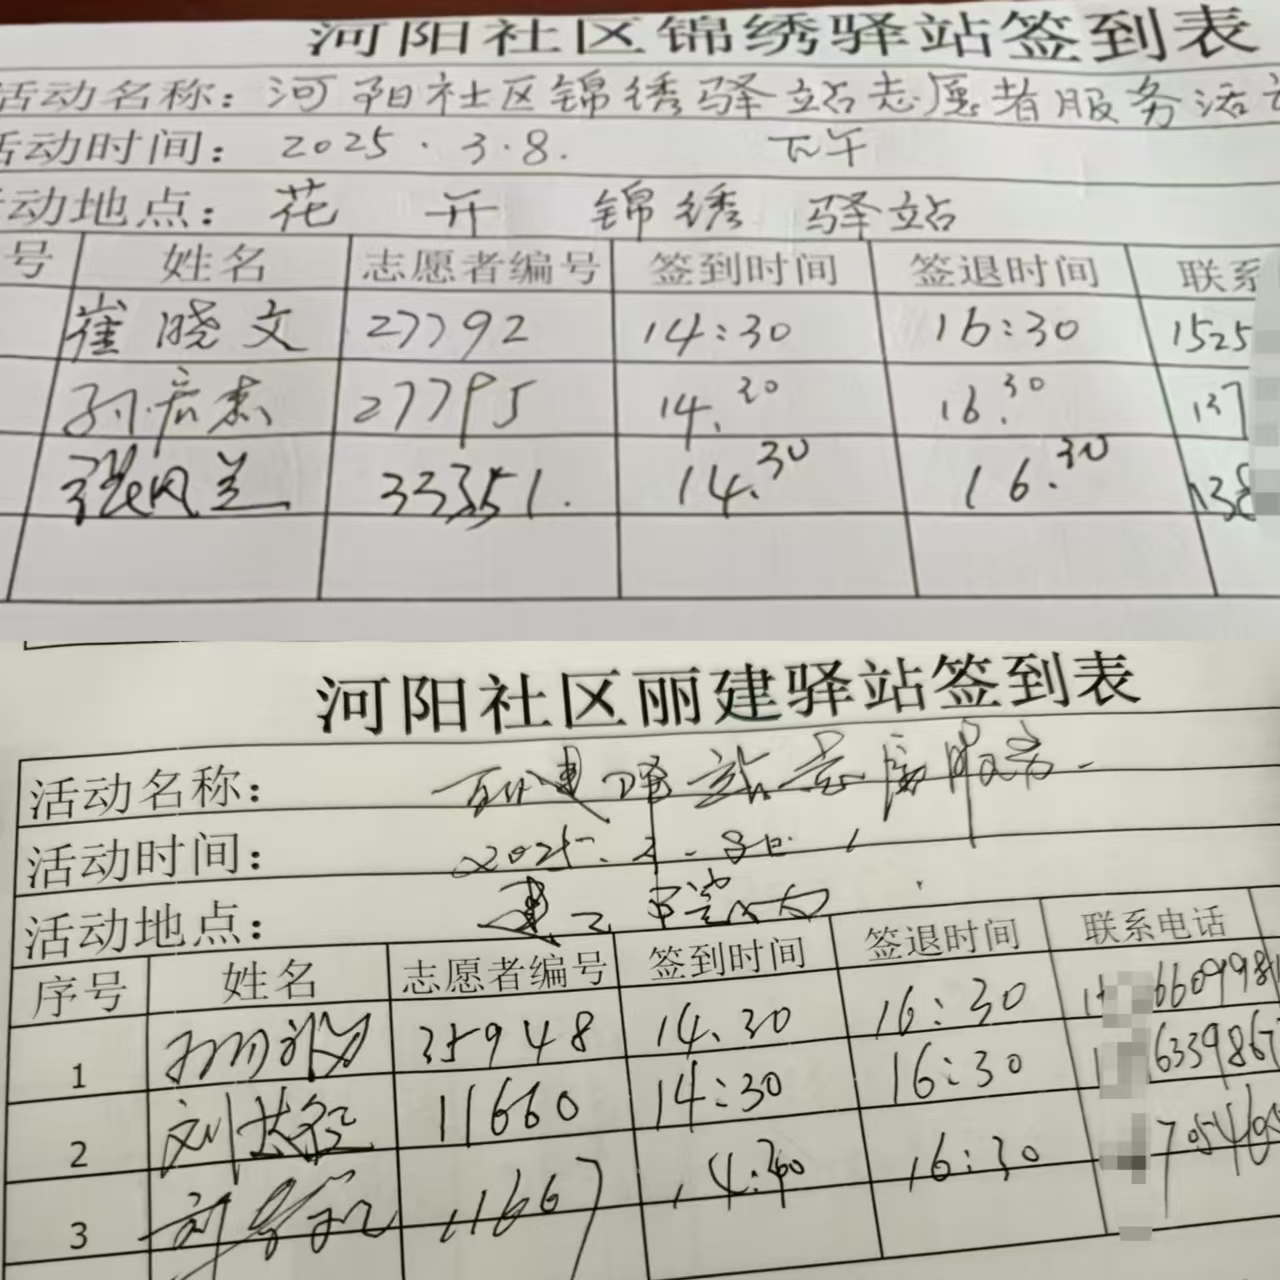 河阳社区锦绣驿站签到表
活动名称：河阳社区锦绣驿站志愿者服务活动
活动时间：2025.3.8. 下午
活动地点：花开锦绣驿站
号 姓名 志愿者编号 签到时间 签退时间 联系
崔晓文 27792 14:30 16:30 1525
孙彦杰 27795 14.30 16.30 137
张凤兰 33351. 14.30 16.30 138
河阳社区丽建驿站签到表
活动名称：丽建驿站志愿服务
活动时间：2025.3.8日
活动地点：建
序号 姓名 志愿者编号 签到时间 签退时间 联系电话
1 35948 14.30 16:30 6609981
2 刘 11660 14:30 16:30 6339867
3 11667 14:30 16:30 705416